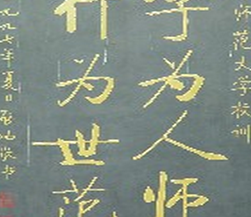 师范大学校训
学为人师
行为世范
九九七年夏日启功敬书